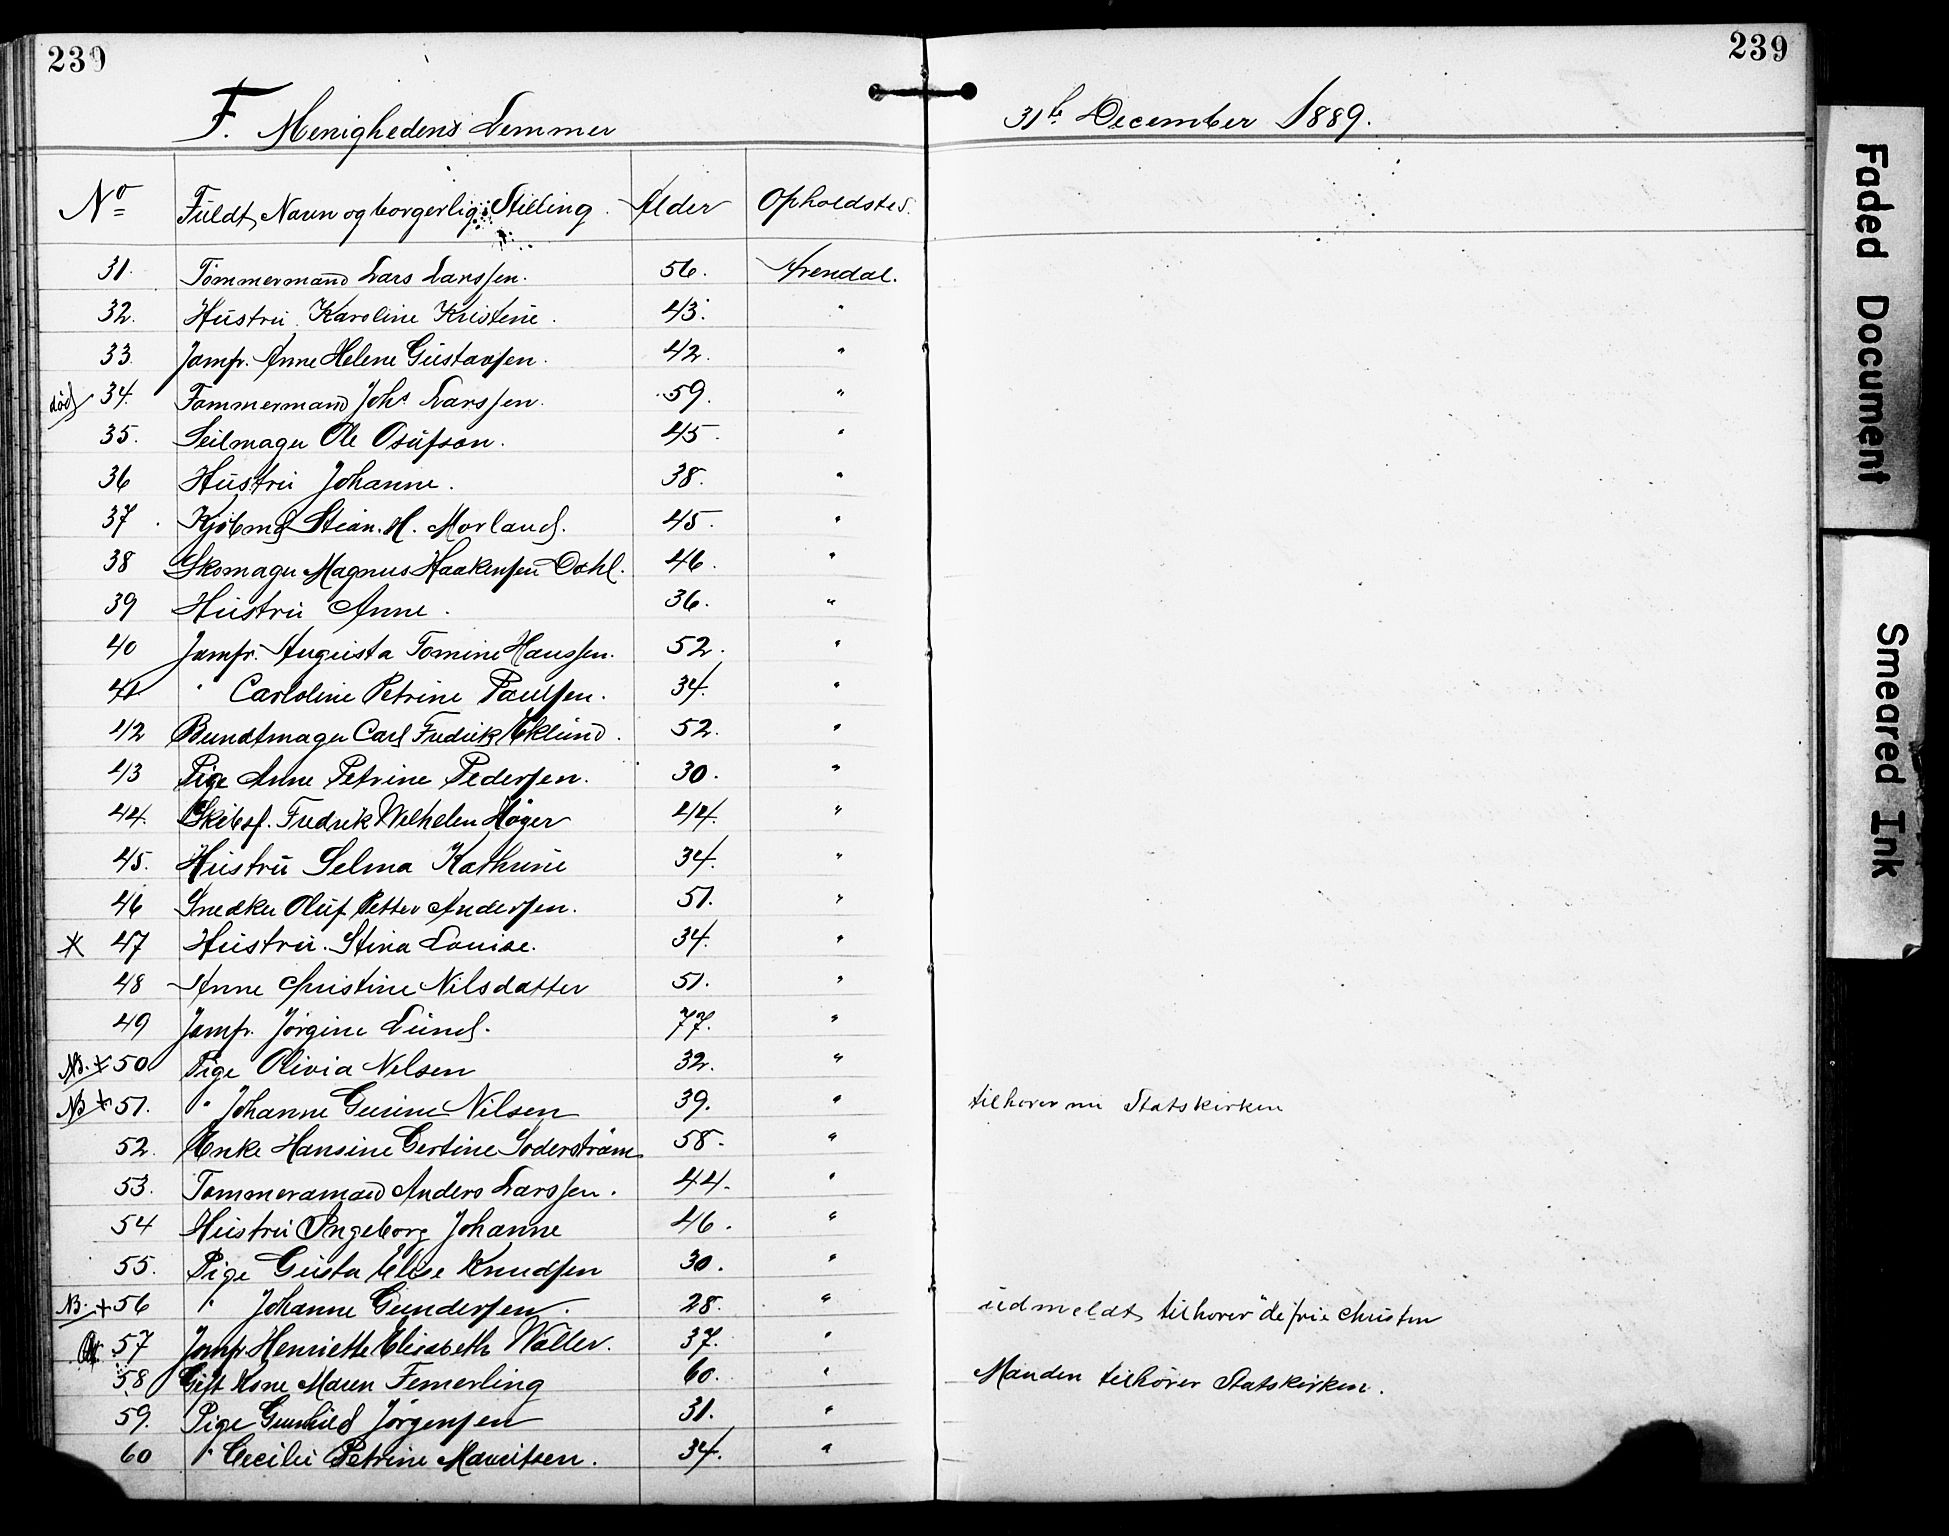 239
239
F. Menighedens Lemmer 31te December 1889.
No Fuldt Navn og borgerlig Stilling. Alder Opholdsted.
31. Tømmermand Lars Larssen. 56. Arendal.
32. Hustru Karoline Kristine. 43. "
33. Jomfr. Anne Helene Gustavsen. 42. "
død 34. Tømmermand Johs Larssen. 59. "
35. Seilmager Ole Osufson. 45. "
36 Hustru Johanne. 38. "
37. Kjøbmd Stian. H. Morland. 45. "
38 Skomager Magnus Haakensen Dahl. 46. "
39 Hustru Anne. 36. "
40 Jomfr. Augusta Tomine Hanssen. 52. "
41 " Carloline Petrine Paulsen. 34. "
42 Bundtmager Carl Fredrik Eklund. 52. "
43 Pige Anne Petrine Pedersen. 30. "
44. Skibsf. Fredrik Wilhelm Høger 44. "
45. Hustru Selma Kathrine 34. "
46 Snedker Oluf Petter Andersen. 51. "
X 47 Hustru. Stina Louise. 34. "
48 Anne Christine Nilsdatter 51. "
49 Jomfr. Jørgine Lund. 77. "
NB. X 50 Pige Olivia Nilsen 32. "
NB X 51. " Johanne Gurine Nilsen 39. " tilhører nu Statskirken
52. Enke Hansine Gertine Søderstrøm 58. "
53. Tømmeramand Anders Larssen. 44. "
54 Hustru Ingeborg Johanne 46. "
55. Pige Gusta Elise Knudsen 30. "
NB. X 56 " Johanne Gundersen. 28. " udmeldt, tilhører "de frie Christen
57 Jomfr. Henriette Elisabeth Wøller. 37. "
58 Gift Kone Maren Femerling 60. " Manden tilhører Statskirken.
59. Pige Gunhild Jørgensen 31. "
60 " Cecilie Petrine Mauritsen. 34. "
Faded Document
Smeared Ink